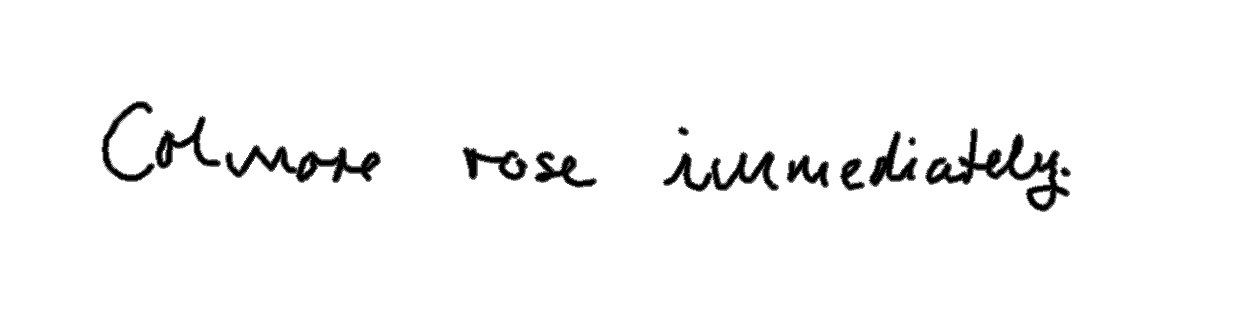 Colmore rose immediately.